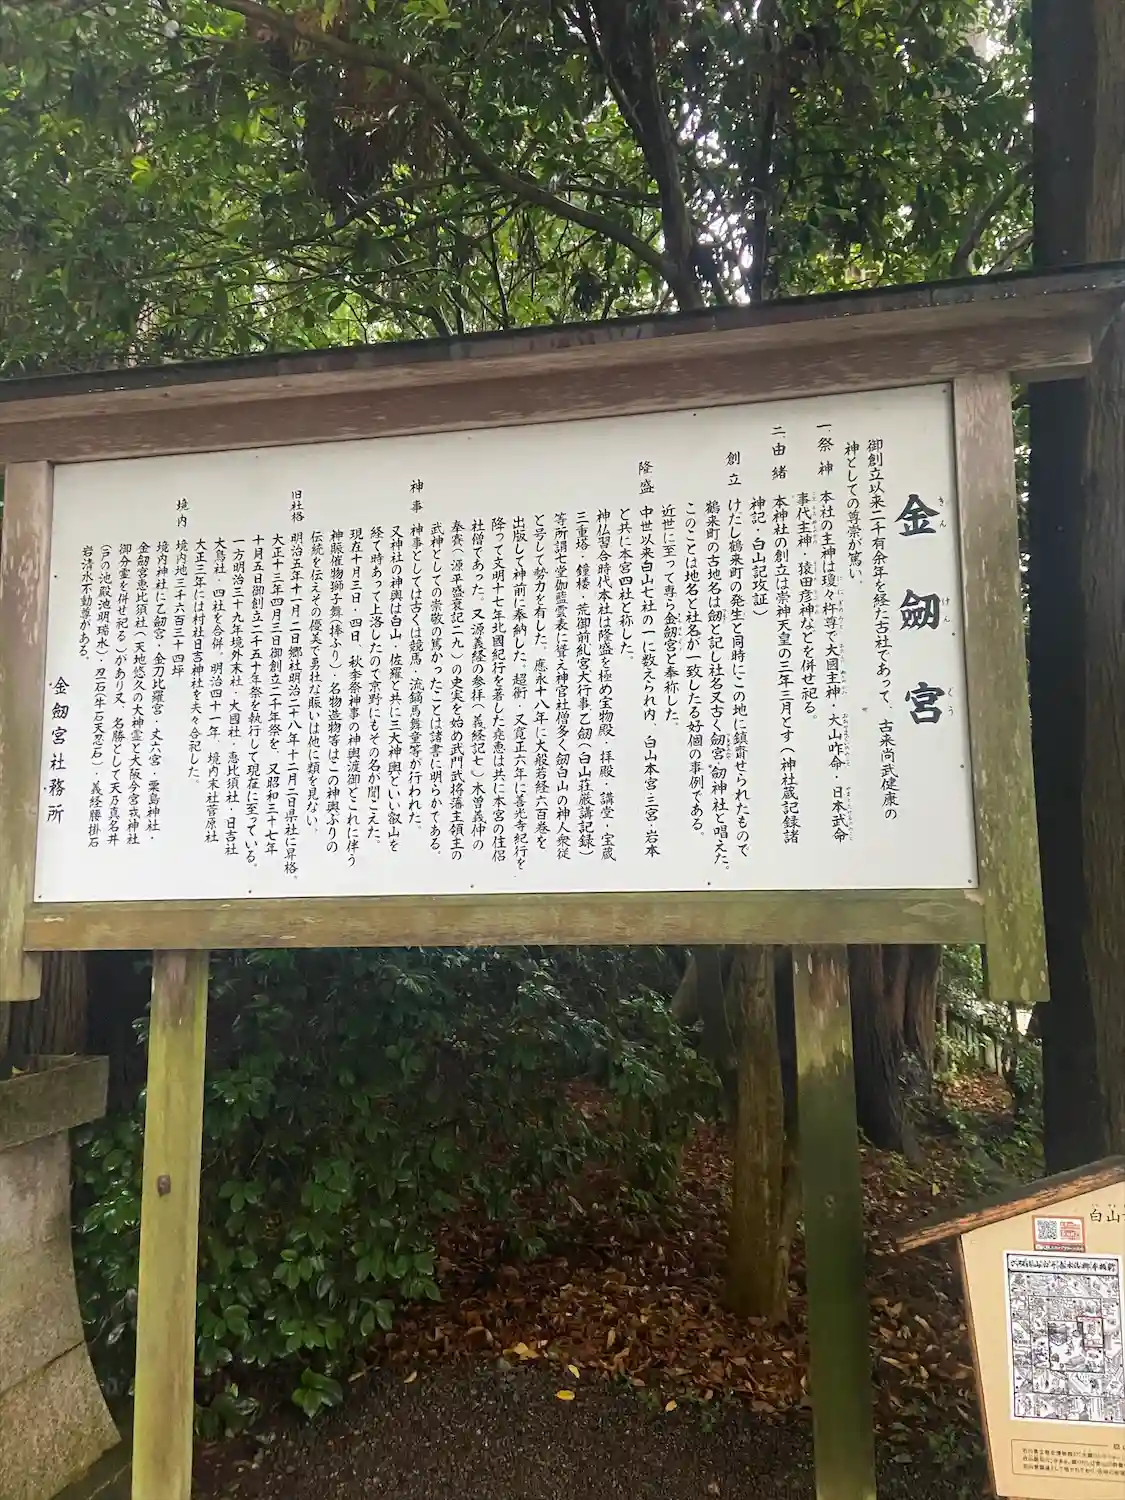 金劔宮
きん けん ぐう
御創立以来二千有余年を経た古社であって、古来尚武健康の
神としての尊崇が篤い。
一、祭神 本社の主神は瓊々杵尊で大國主神・大山咋命・日本武命
事代主神・猿田彦神などを併せ祀る。
二、由緒 本神社の創立は崇神天皇の三年三月とす(神社蔵記録諸
神記・白山記攷証)
創立 けだし鶴来町の発生と同時にこの地に鎮齋せられたもので
鶴来町の古地名は劔と記し社名又古く劔宮・劔神社と唱えた。
このことは地名と社名が一致したる好個の事例である。
近世に至って専ら金劔宮と奉称した。
隆盛 中世以来白山七社の一に数えられ内、白山本宮・三宮・岩本
と共に本宮四社と称した。
神仏習合時代本社は隆盛を極め宝物殿・拝殿・講堂・宝蔵
三重塔・鐘楼・荒御前糺宮大行事、乙劔(白山荘厳講記録)
等所謂七堂伽藍雲表に聳え神官社僧多く劔白山の神人衆徒
と号して勢力を有した。應永十八年に大般若経六百巻を
出版して神前に奉納した。超術・又寛正六年に善光寺紀行を
降って文明十七年北國紀行を著した尭恵は共に本宮の住侶
社僧であった。又源義経の参拝(義経記七)木曽義仲の
奉賽(源平盛衰記二九)の史実を始め武門武将藩主領主の
武神としての崇敬の篤かったことは諸書に明らかである。
神事 神事としては古くは競馬・流鏑馬舞童等が行われた。
又神社の神輿は白山・佐羅と共に三大神輿といい叡山を
経て時あって上洛したので京野にもその名が聞こえた。
現在十月三日・四日、秋季祭神事の神輿渡御とこれに伴う
神賑催物獅子舞(捧ふり)・名物造物等はこの神輿ぶりの
伝統を伝えその優美で勇壮な賑いは他に類を見ない。
旧社格 明治五年十一月二日郷社明治二十八年十二月二日県社に昇格。
大正十三年四月三日御創立二千年祭を、又昭和三十七年
十月五日御創立二千五十年祭を執行して現在に至っている。
一方明治三十九年境外末社・大國社・恵比須社・日吉社
大鳥社・四社を合併、明治四十一年、境内末社菅原社
大正三年には村社日吉神社を夫々合祀した。
境内 境内地三千六百三十四坪
境内神社に乙劔宮・金刀比羅宮・丈六宮・粟島神社・
金劔宮恵比須社(天地悠久の大神霊と大阪今宮戎神社
御分霊を併せ祀る)があり又、名勝として天乃真名井
(一の池殿池明瑞水)・刃石(牛石天忍石)・義経腰掛石
岩清水不動尊がある。
金劔宮社務所
白山